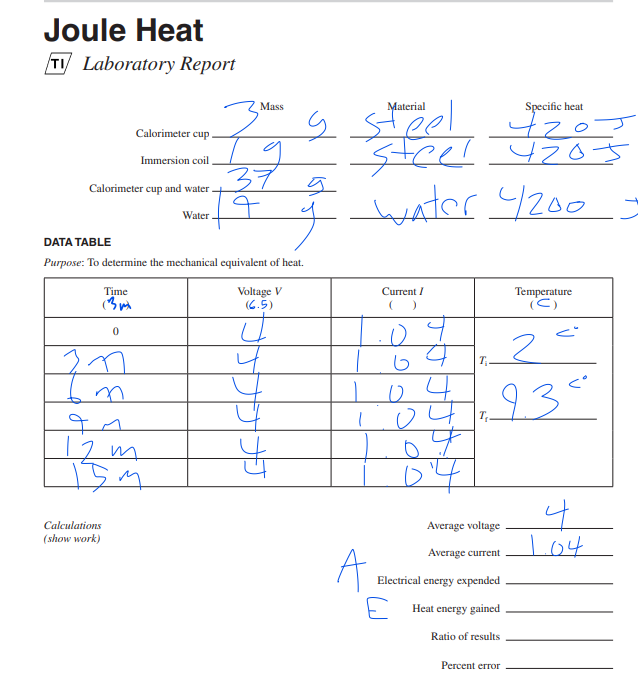 Joule Heat
TI Laboratory Report
Mass Material Specific heat
Calorimeter cup 3 g steel 420 J
Immersion coil 1 g steel 420 J
Calorimeter cup and water 37 g
Water g water 4200 J
DATA TABLE
Purpose: To determine the mechanical equivalent of heat.
Time Voltage V Current I Temperature
(3m) (6.5) ( ) (C)
0 4 1.04
3 m 4 1.04 Ti 2 c°
6 m 4 1.04
9 m 4 1.04 Tf 9.3 c°
12 m 4 1.04
15 m 4 1.04
Calculations
(show work)
Average voltage 4
Average current 1.04
A Electrical energy expended
E Heat energy gained
Ratio of results
Percent error